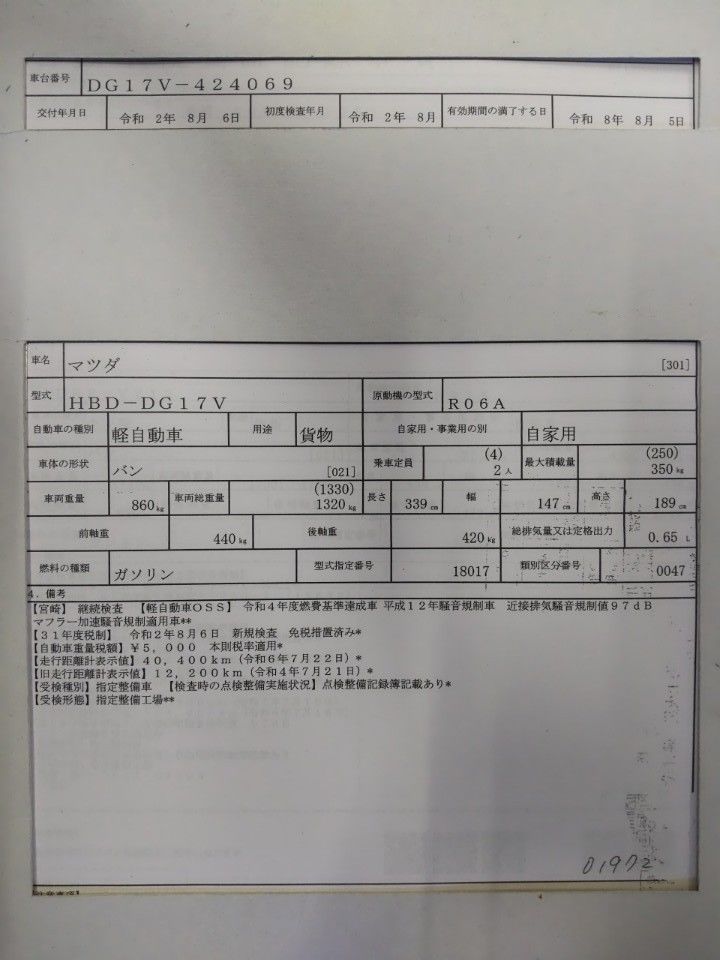 車台番号 DG17V-424069
交付年月日 令和 2年 8月 6日 初度検査年月 令和 2年 8月 有効期間の満了する日 令和 8年 8月 5日
車名 マツダ [301]
型式 HBD-DG17V 原動機の型式 R06A
自動車の種別 軽自動車 用途 貨物 自家用・事業用の別 自家用
車体の形状 バン [021] 乗車定員 (4) 2人 最大積載量 (250) 350kg
車両重量 860kg 車両総重量 (1330) 1320kg 長さ 339cm 幅 147cm 高さ 189cm
前軸重 440kg 後軸重 420kg 総排気量又は定格出力 0.65L
燃料の種類 ガソリン 型式指定番号 18017 類別区分番号 0047
4.備考
【宮崎】 継続検査 【軽自動車OSS】 令和4年度燃費基準達成車 平成12年騒音規制車 近接排気騒音規制値97dB
マフラー加速騒音規制適用車**
【31年度税制】 令和2年8月6日 新規検査 免税措置済み*
【自動車重量税額】¥5,000 本則税率適用*
【走行距離計表示値】40,400km(令和6年7月22日)*
【旧走行距離計表示値】12,200km(令和4年7月21日)*
【受検種別】指定整備車 【検査時の点検整備実施状況】点検整備記録簿記載あり*
【受検形態】指定整備工場**
01972